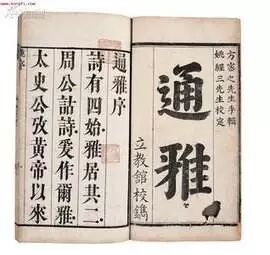 方密之先生手輯
姚經三先生校定
通雅
立教館校鐫
通雅序
詩有四始雅居其二
周公詁詩爰作爾雅
太史公攷黃帝以來